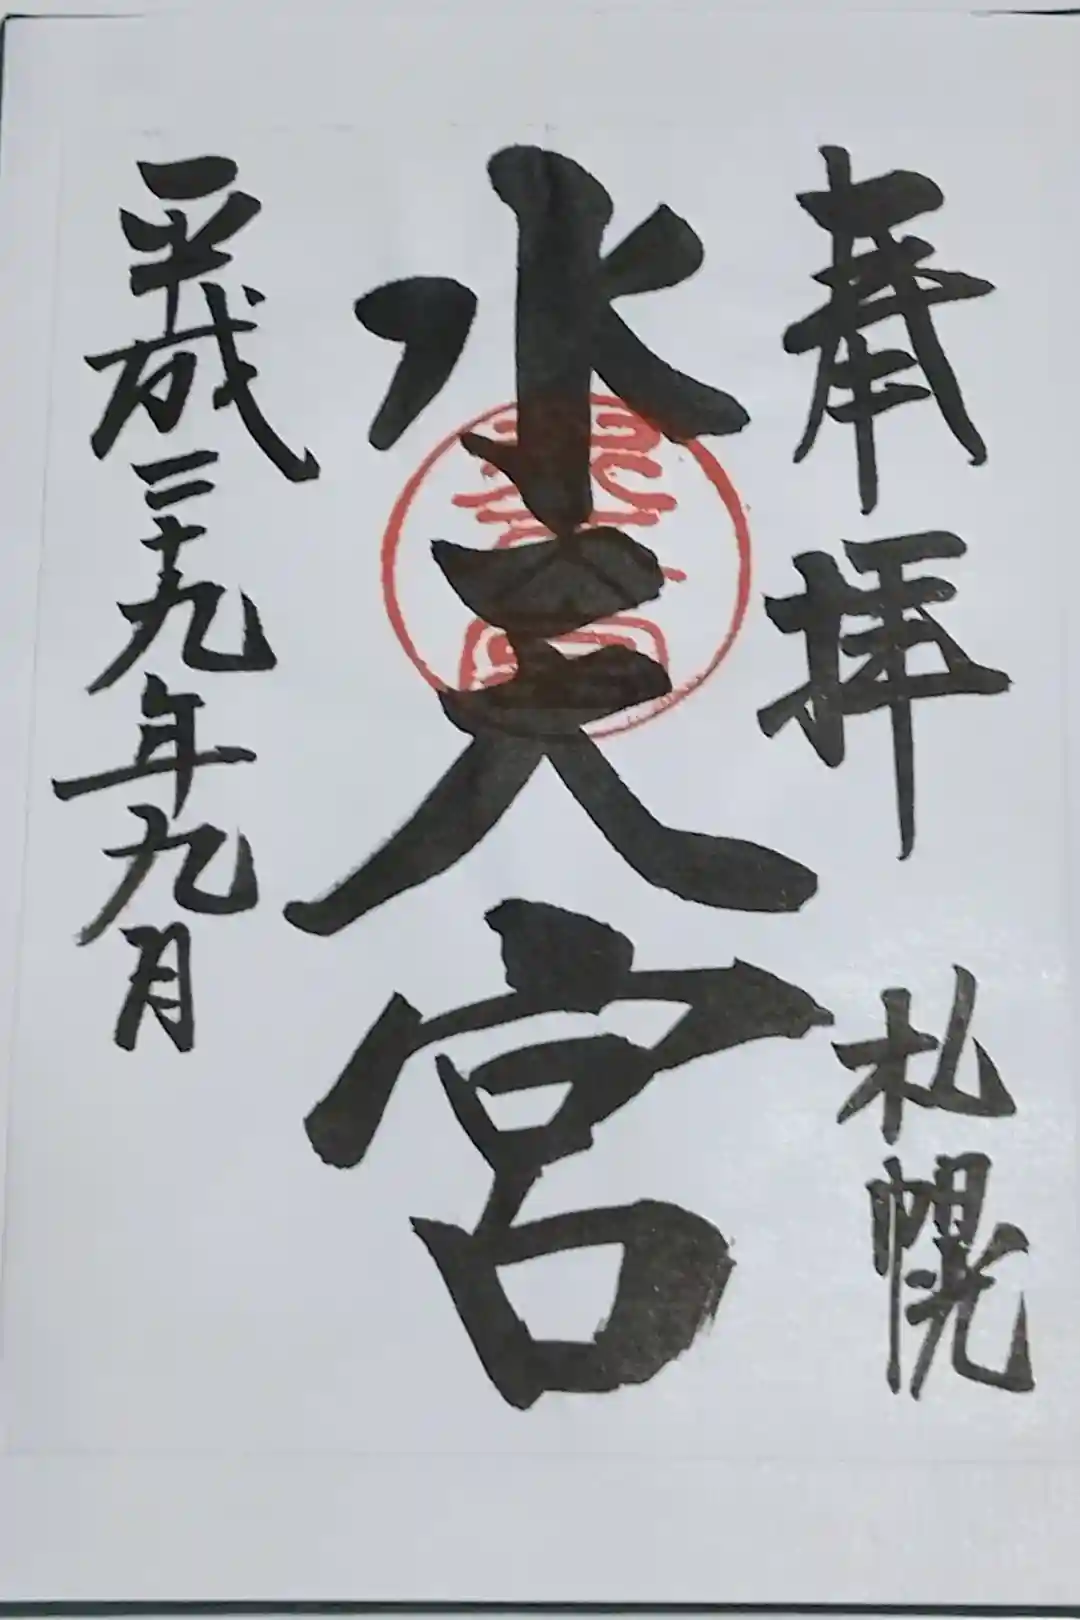 奉拝 札幌
水天宮
平成二十九年九月